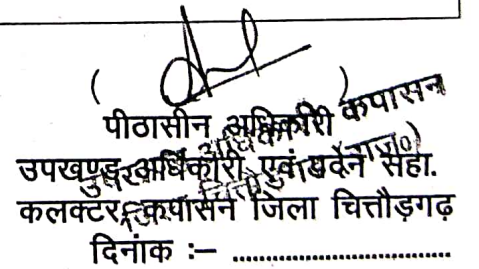 ( )
पीठासीन अधिकारी
उपखण्ड अधिकारी एवं पदेन सहा.
कलक्टर, कपासन जिला चित्तौड़गढ़
दिनांक :– ................................
कपासन